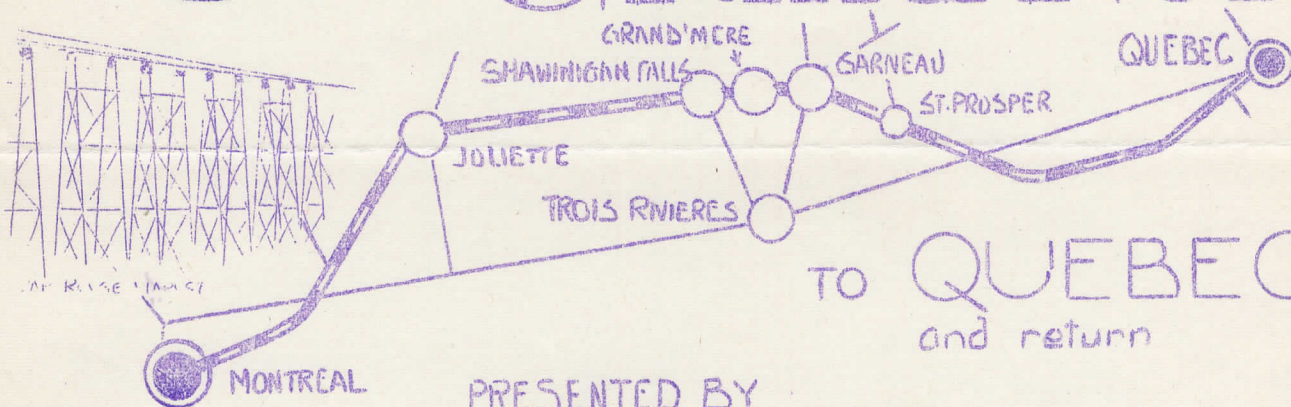 GRAND'MERE
SHAWINIGAN FALLS
GARNEAU
QUEBEC
ST. PROSPER
JOLIETTE
TROIS RIVIERES
TO QUEBEC
and return
MONTREAL
PRESENTED BY